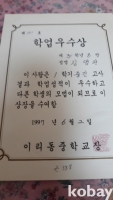 학업우수상
이 사람은 1학기 중간 고사
결과 학업성적이 우수하고
다른 학생의 모범이 되므로 이
상장을 수여함
1997년 6월 2일
이리동중학교장
kobay